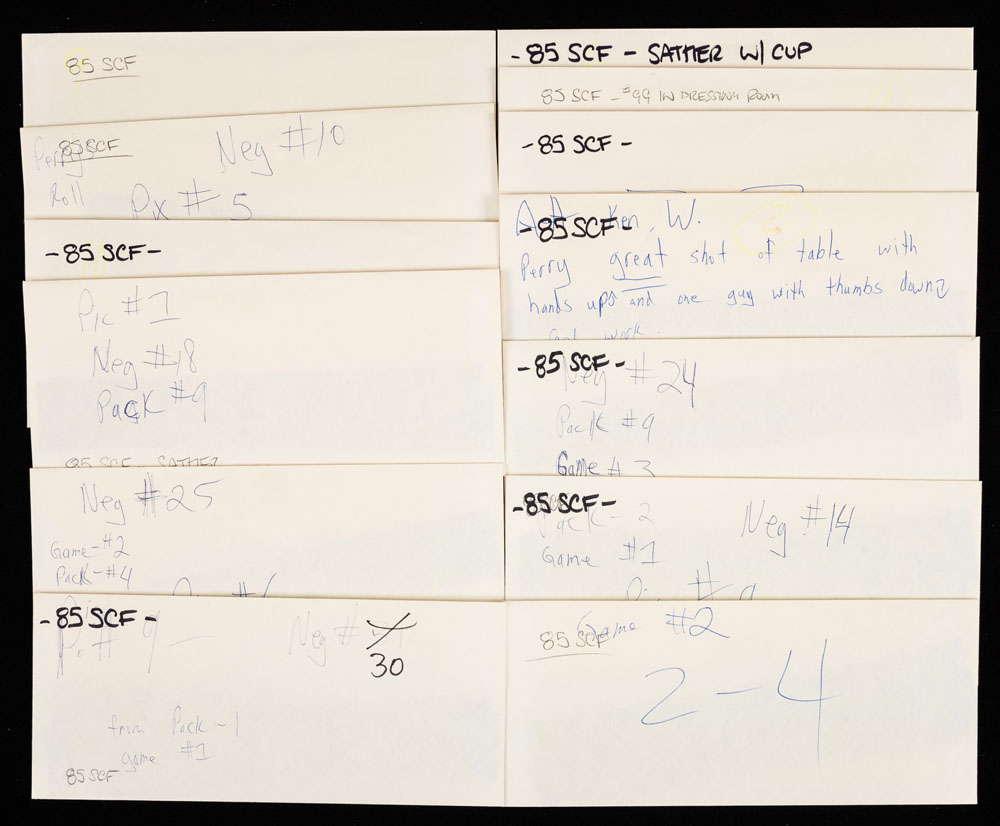 85 SCF
85 SCF
Perry
Roll
Neg #10
Pix # 5
-85 SCF-
Pic #1
Neg #18
Pack #9
85 SCF SATHER
Neg #25
Game-#2
Pack-#4
-85 SCF-
Neg #
30
from Pack-1
game #1
85 SCF
-85 SCF - SATHER W/ CUP
85 SCF - #99 IN DRESSING ROOM
-85 SCF-
-85 SCF-
Ken W.
Perry great shot of table with
hands ups and one guy with thumbs down
work.
-85 SCF-
Neg #24
Pack #9
Game # 3
-85 SCF-
Pack - 2
Neg #14
Game #1
85 SCF
Game #2
2-4